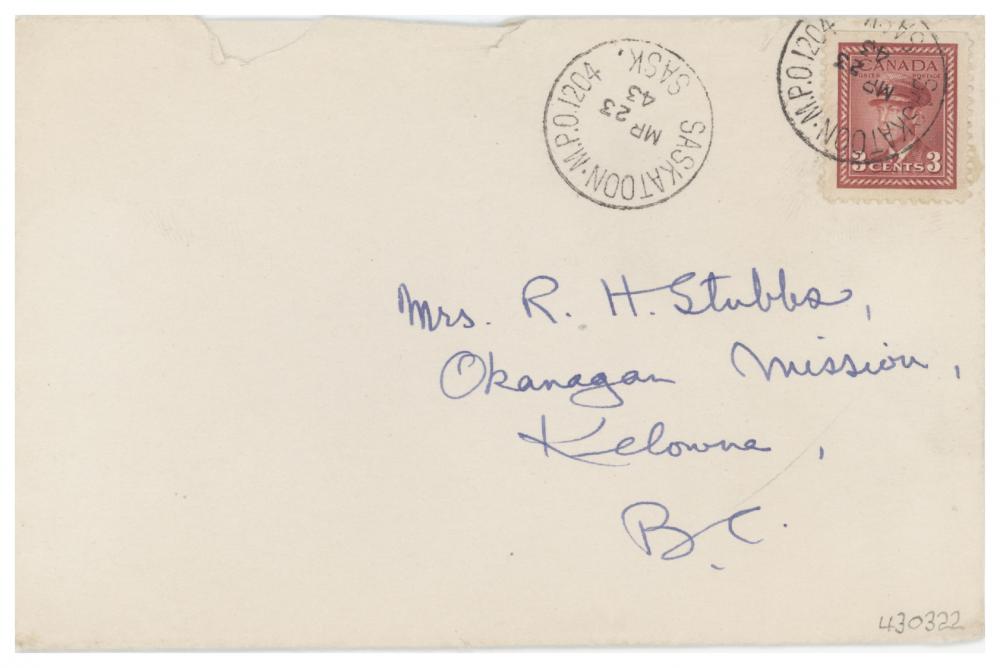 SASKATOON · M.P.O. 1204
SASK.
MR 23
43
SASKATOON · M.P.O. 1204
SASK.
MR 23
43
CANADA
POSTES POSTAGE
3 CENTS 3
Mrs. R. H. Stubbs,
Okanagan Mission,
Kelowna,
B.C.
430322